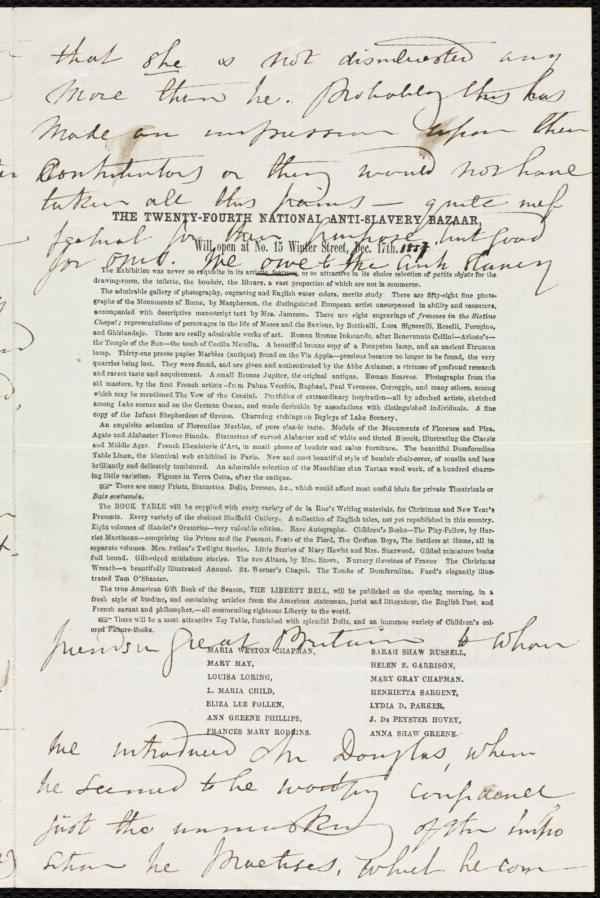 that she is not disinterested any
more than he. Probably this has
made an impression upon their
Contributors or they would not have
taken all this pains — quite inef
fectual for their purpose, but good
for ours. We owe to the Anti Slavery
THE TWENTY-FOURTH NATIONAL ANTI-SLAVERY BAZAAR,
Will open at No. 15 Winter Street, Dec. 17th. 1857
The Exhibition was never so exquisite in its artistic features, or so attractive in its choice selection of petits objets for the
drawing-room, the toilette, the boudoir, the library, a vast proportion of which are not in commerce.
The admirable gallery of photography, engraving and English water colors, merits study. There are fifty-eight fine photo-
graphs of the Monuments of Rome, by Macpherson, the distinguished European artist unsurpassed in ability and resources,
accompanied with descriptive manuscript text by Mrs. Jameson. There are eight engravings of frescoes in the Sistine
Chapel; representations of personages in the life of Moses and the Saviour, by Botticelli, Luca Signorelli, Roselli, Perugino,
and Ghirlandajo. These are really admirable works of art. Roman Bronze Inkstands, after Benevenuto Cellini—Ariosto's—
the Temple of the Sun—the tomb of Cecilia Metella. A beautiful bronze copy of a Pompeian lamp, and an ancient Etruscan
lamp. Thirty-one presse papier Marbles (antique) found on the Via Appia—precious because no longer to be found, the very
quarries being lost. They were found, and are given and authenticated by the Abbe Aulamer, a virtuoso of profound research
and rarest taste and aquirement. A small Bronze Jupiter, the original antique. Roman Scarves. Photographs from the
old masters, by the first French artists—from Palma Vecchio, Raphael, Paul Veronese, Correggio, and many others, among
which may be mentioned The Vow of the Concini. Portfolios of extraordinary inspiration—all by admired artists, sketched
among Lake scenes and on the German Ocean, and made desirable by associations with distinguished individuals. A fine
copy of the Infant Shepherdess of Greuse. Charming etchings on Doyleys of Lake Scenery.
An exquisite selection of Florentine Marbles, of pure classic taste. Models of the Monuments of Florence and Pisa.
Agate and Alabaster Flower Stands. Statuettes of carved Alabaster and of white and tinted Biscuit, illustrating the Classic
and Middle Ages. French Ebenisterie d'Arts, in small pieces of boudoir and salon furniture. The beautiful Dumfermline
Table Linen, the identical web exhibited in Paris. New and most beautiful style of boudoir chair-cover, of muslin and lace
brilliantly and delicately tamboured. An admirable selection of the Mauchline clan Tartan wood work, of a hundred charm-
ing little varieties. Figures in Terra Cotta, after the antique.
☞ There are many Prints, Statuettes Dolls, Dresses, &c., which would afford most useful hints for private Theatricals or
Bals costumés.
The BOOK TABLE will be supplied with every variety of de la Rue's Writing materials, for Christmas and New Year's
Presents. Every variety of the choicest Sheffield Cutlery. A collection of English tales, not yet republished in this country.
Eight volumes of Handel's Oratorios—very valuable edition. Rare Autographs. Children's Books—The Play-Fellow, by Har-
riet Martineau—comprising the Prince and the Peasant, Feats of the Fiord, The Crofton Boys, The Settlers at Home, all in
separate volumes. Mrs. Follen's Twilight Stories. Little Stories of Mary Howitt and Mrs. Sherwood. Gilded miniature books
full bound. Gilt-edged miniature stories. The two Altars, by Mrs. Stowe. Nursery Heroines of France The Christmas
Wreath—a beautifully Illustrated Annual. St. Werner's Chapel. The Tombs of Dumfermline. Faed's elegantly illus-
trated Tam O'Shanter.
The true American Gift Book of the Season, THE LIBERTY BELL, will be published on the opening morning, in a
fresh style of binding, and containing articles from the American statesman, jurist and littérateur, the English Poet, and
French savant and philosopher,—all commending righteous Liberty to the world.
☞ There will be a most attractive Toy Table, furnished with splendid Dolls, and an immense variety of Children's col-
ored Picture-Books.
friends in great Britain to whom
MARIA WESTON CHAPMAN,
MARY MAY,
LOUISA LORING,
L. MARIA CHILD,
ELIZA LEE FOLLEN,
ANN GREENE PHILLIPS,
FRANCES MARY ROBBINS.
SARAH SHAW RUSSELL,
HELEN E. GARRISON,
MARY GRAY CHAPMAN,
HENRIETTA SARGENT,
LYDIA D. PARKER,
J. De PEYSTER HOVEY,
ANNA SHAW GREENE.
we introduced Mr Douglas, when
he seemed to be worthy confidence
just the unmasking of the impo
sition he practises, which he com—